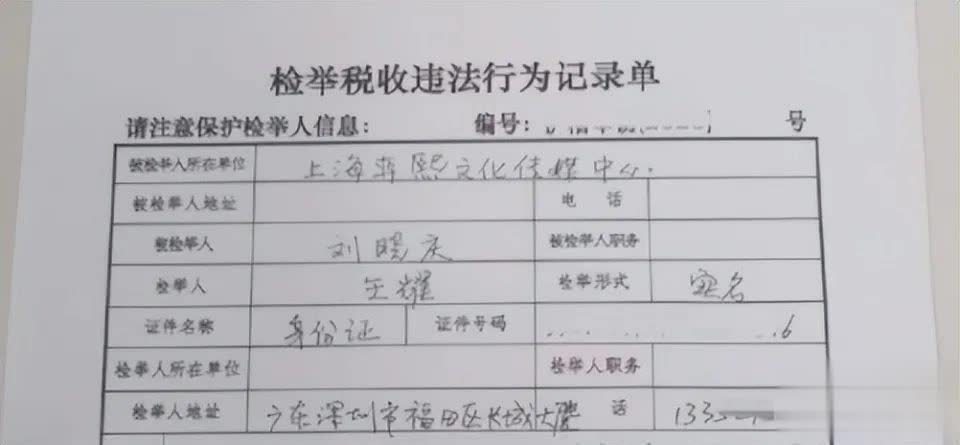 检举税收违法行为记录单
请注意保护检举人信息： 编号： 号
被检举人所在单位 上海 熙文化传媒中心.
被检举人地址 电 话
被检举人 刘晓庆 被检举人职务
检举人 王耀 检举形式 实名
证件名称 身份证 证件号码 6
检举人所在单位 检举人职务
检举人地址 广东深圳市福田区长城大厦 话 133